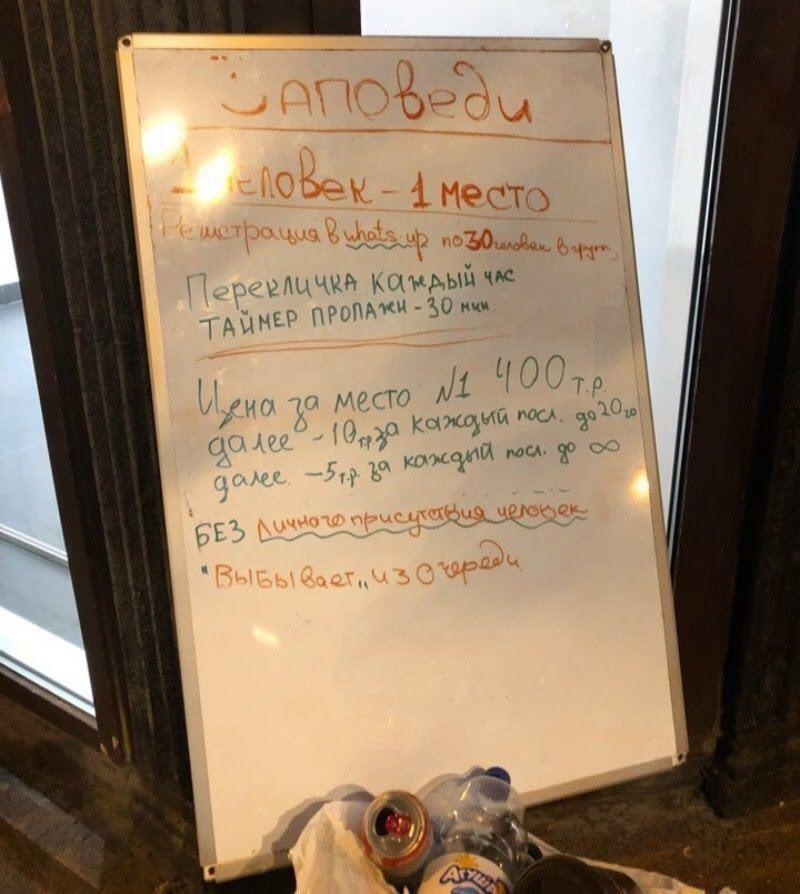 Заповеди
1 человек - 1 место
Регистрация в whats-up по 30 человек в групп
Перекличка каждый час
ТАЙМЕР ПРОПАЖИ - 30 мин
Цена за место №1 400 т.р.
далее -10т.р. за каждый посл. до 20го
далее. -5т.р. за каждый посл. до ∞
БЕЗ Личного присутствия человек
"Выбывает" из очереди
Агуша